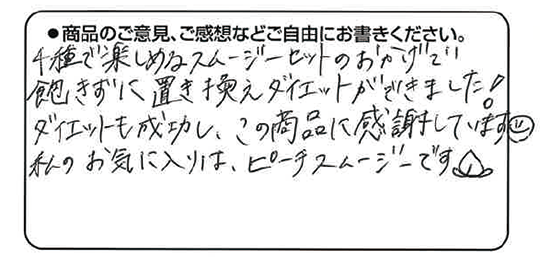 ●商品のご意見、ご感想などご自由にお書きください。
4種で楽しめるスムージーセットのおかげで
飽きずに置き換えダイエットができました!
ダイエットも成功し、この商品に感謝しています
私のお気に入りは、ピーチスムージーです